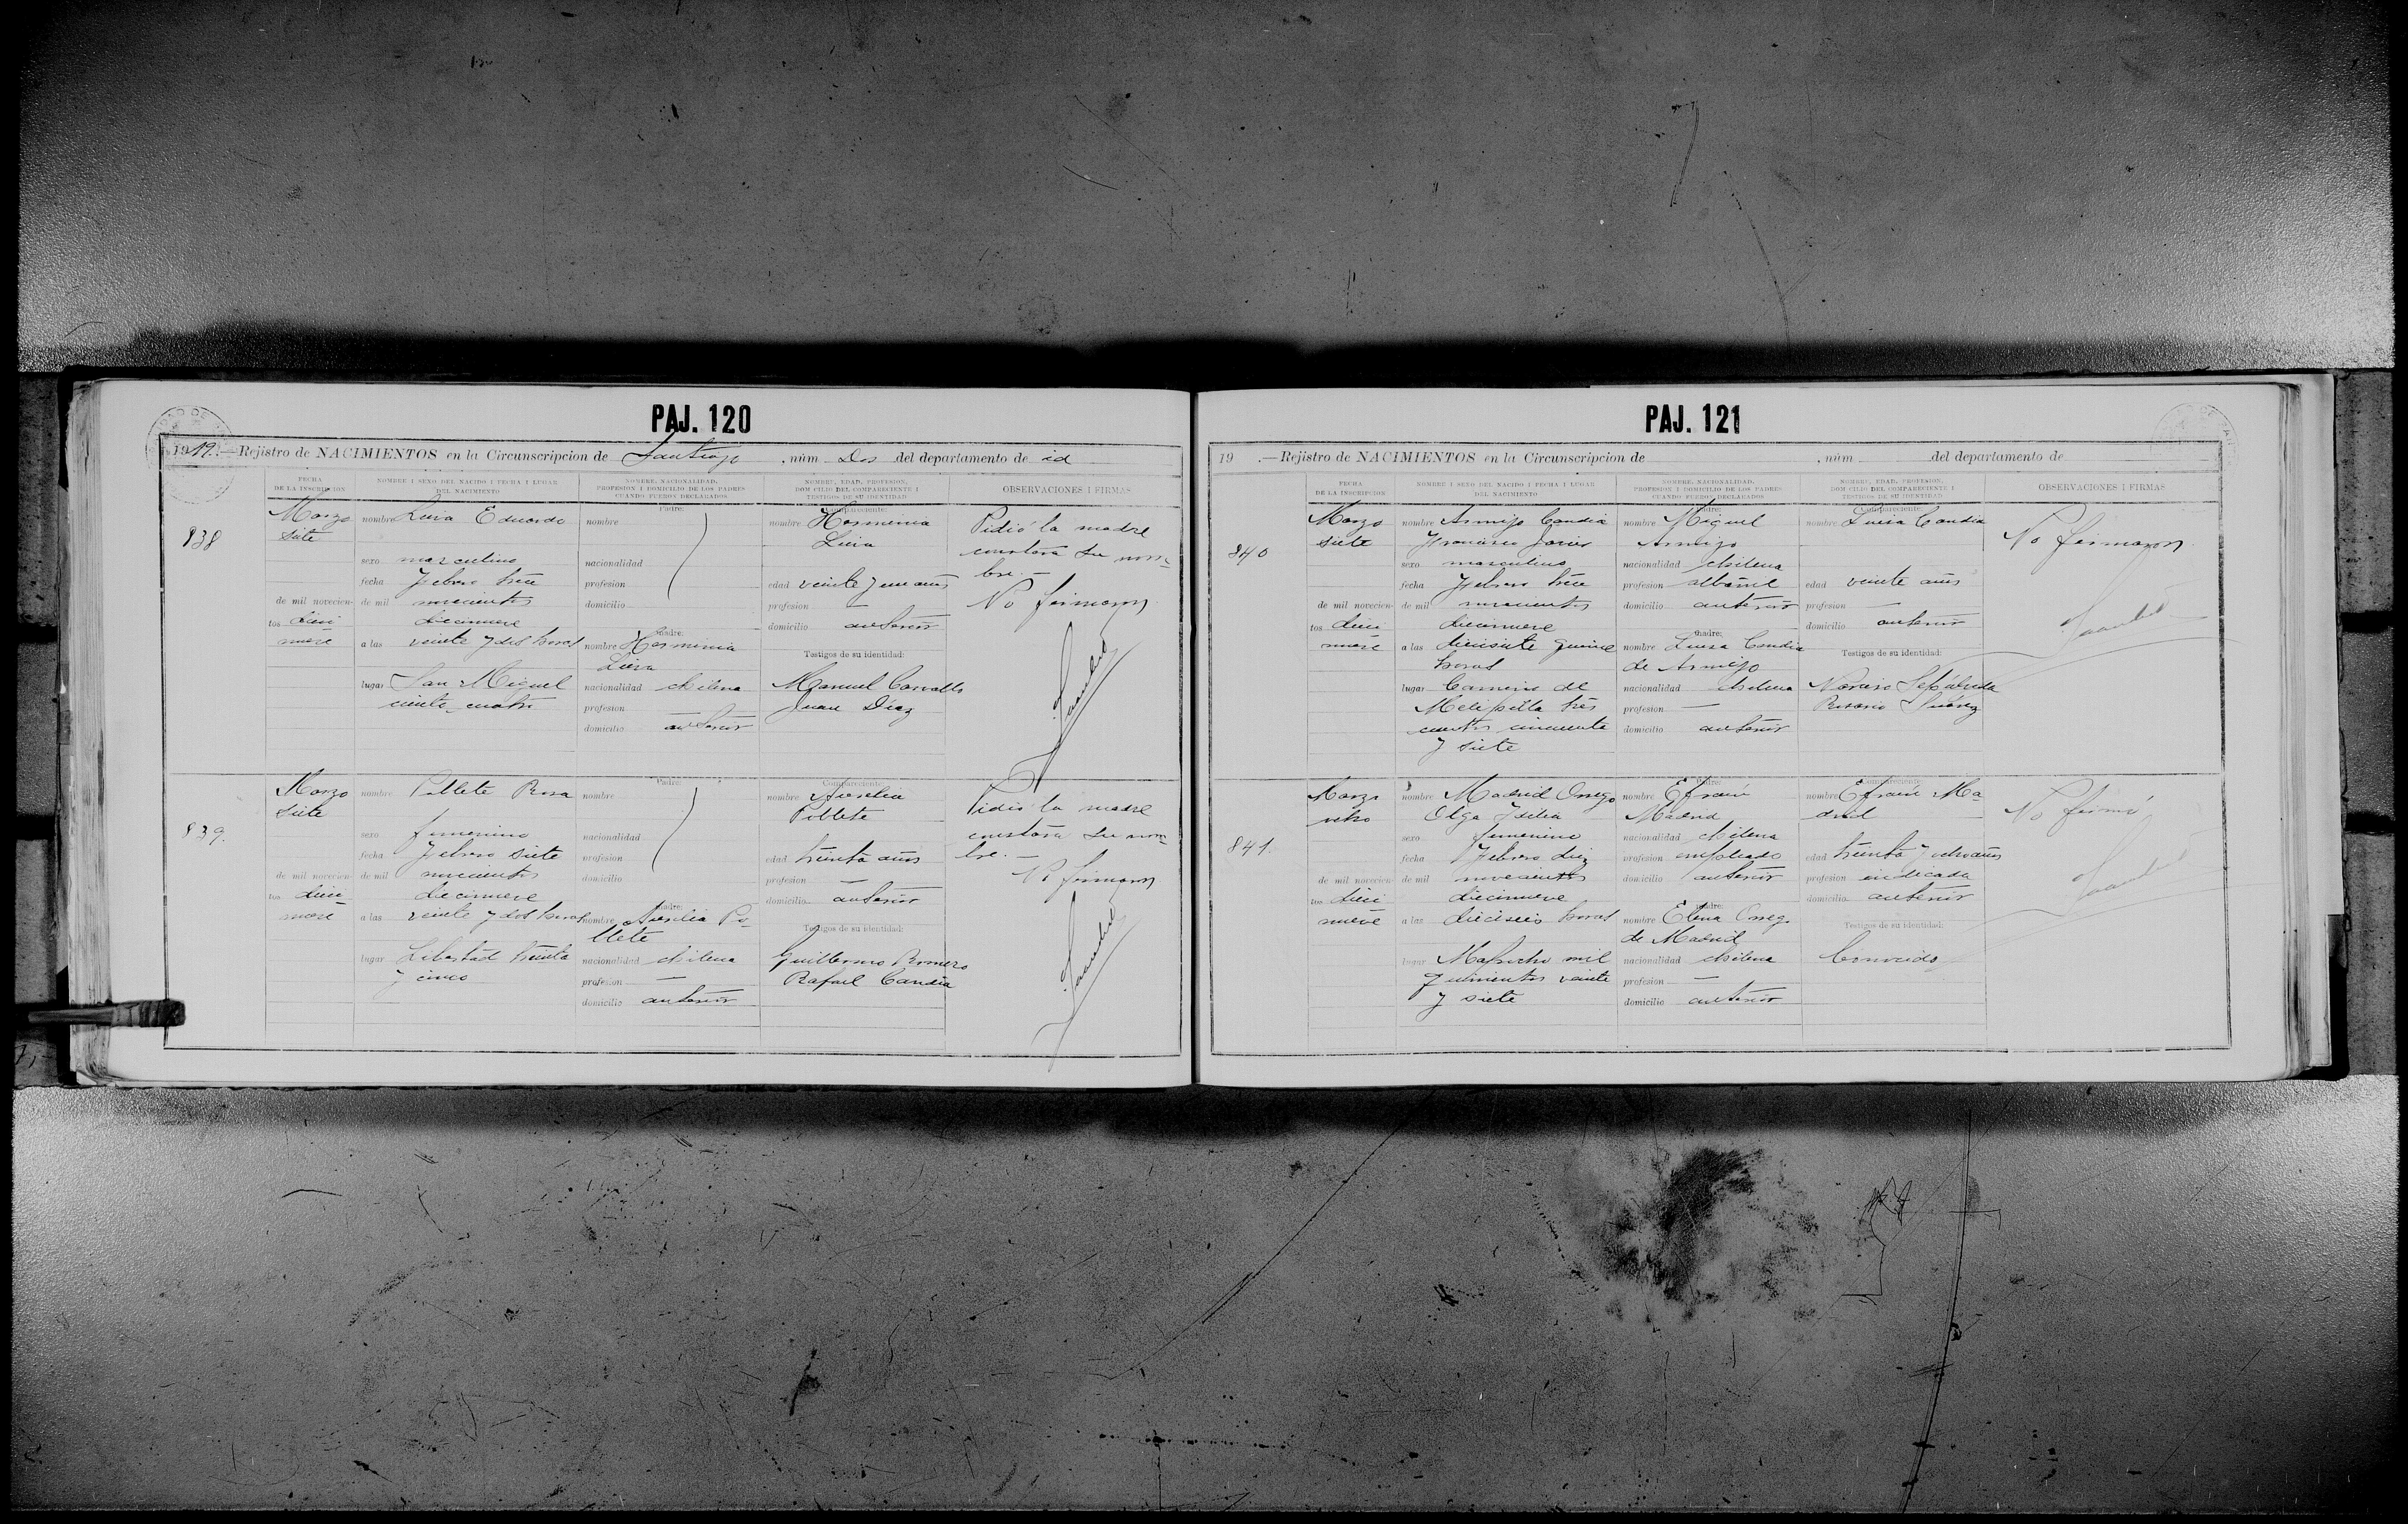 PAJ. 120
1919.—Rejistro de NACIMIENTOS en la Circunscripcion de Santiago, núm Dos del departamento de id
FECHA DE LA INSCRIPCION
NOMBRE I SEXO DEL NACIDO I FECHA I LUGAR DEL NACIMIENTO
NOMBRE, NACIONALIDAD, PROFESION I DOMICILIO DE LOS PADRES CUANDO FUEREN DECLARADOS
NOMBRE, EDAD, PROFESION, DOMICILIO DEL COMPARECIENTE I TESTIGOS DE SU IDENTIDAD
OBSERVACIONES I FIRMAS
838
Marzo
siete
de mil novecien-
tos dieci
nueve
nombre Eduardo
sexo masculino
fecha Febrero trece
de mil novecientos
diecinueve
a las veinte y dos horas
lugar San Miguel
ciento cuatro
Padre:
nombre
nacionalidad
profesion
domicilio
Madre:
nombre Herminia
nacionalidad chilena
profesion
domicilio anterior
Compareciente:
nombre Herminia
edad veinte y un años
profesion —
domicilio anterior
Testigos de su identidad:
Manuel Carvallo
Juan Díaz
Pidió la madre
constara su nom-
bre.—
No firmaron
839.
Marzo
siete
de mil novecien-
tos dieci
nueve
nombre Poblete Rosa
sexo femenino
fecha Febrero siete
de mil novecientos
diecinueve
a las veinte y dos horas
lugar Libertad treinta
y cinco
Padre:
nombre
nacionalidad
profesion
domicilio
Madre:
nombre Aurelia Po-
blete
nacionalidad chilena
profesion —
domicilio anterior
Compareciente:
nombre Aurelia
Poblete
edad treinta años
profesion —
domicilio anterior
Testigos de su identidad:
Guillermo Romero
Rafael Candia
Pidió la madre
constara su nom-
bre.—
No firmaron
PAJ. 121
19 .—Rejistro de NACIMIENTOS en la Circunscripcion de , núm del departamento de
FECHA DE LA INSCRIPCION
NOMBRE I SEXO DEL NACIDO I FECHA I LUGAR DEL NACIMIENTO
NOMBRE, NACIONALIDAD, PROFESION I DOMICILIO DE LOS PADRES CUANDO FUEREN DECLARADOS
NOMBRE, EDAD, PROFESION, DOMICILIO DEL COMPARECIENTE I TESTIGOS DE SU IDENTIDAD
OBSERVACIONES I FIRMAS
840
Marzo
siete
de mil novecien-
tos dieci
nueve
nombre Armijo Candia
Francisco Javier
sexo masculino
fecha Febrero trece
de mil novecientos
diecinueve
a las diecisiete quince
horas
lugar Camino de
Melipilla tres
cientos cincuenta
y siete
Padre:
nombre Miguel
Armijo
nacionalidad chilena
profesion albañil
domicilio anterior
Madre:
nombre Luisa Candia
de Armijo
nacionalidad chilena
profesion —
domicilio anterior
Compareciente:
nombre Luisa Candia
edad veinte años
profesion —
domicilio anterior
Testigos de su identidad:
Narciso Sepúlveda
Rosario
No firmaron
841.
Marzo
ocho
de mil novecien-
tos dieci
nueve
nombre Madrid Orrego
Olga
sexo femenino
fecha Febrero diez
de mil novecientos
diecinueve
a las dieciseis horas
lugar Mapocho mil
quinientos veinte
y siete
Padre:
nombre Efraín
Madrid
nacionalidad chilena
profesion empleado
domicilio anterior
Madre:
nombre Elena Orrego
de Madrid
nacionalidad chilena
profesion —
domicilio anterior
Compareciente:
nombre Efraín Ma-
drid
edad treinta y ocho años
profesion indicada
domicilio anterior
Testigos de su identidad:
Conocido
No firmó